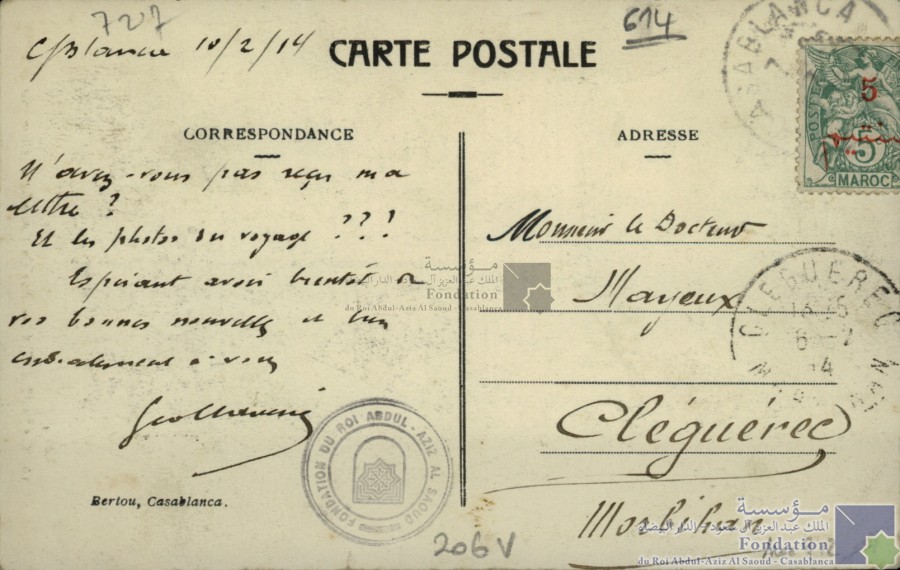 727
614
C/Blanca 10/2/14
CARTE POSTALE
CASABLANCA
5
POSTE
5
MAROC
CORRESPONDANCE
ADRESSE
N'avez-vous pas reçu ma
lettre ?
Et les photos du voyage ???!
Espérant avoir bientôt de
vos bonnes nouvelles et bien
cordialement à vous
Monsieur le Docteur
Mayeux
Cléguérec
Morbihan
CLEGUEREC
MORBIHAN
مؤسسة
الملك عبد العزيز آل سعود - الدار البيضاء
Fondation
du Roi Abdul-Aziz Al Saoud - Casablanca
FONDATION DU ROI ABDUL-AZIZ AL SAOUD
Bertou, Casablanca.
206 V
مؤسسة
الملك عبد العزيز آل سعود - الدار البيضاء
Fondation
du Roi Abdul-Aziz Al Saoud - Casablanca